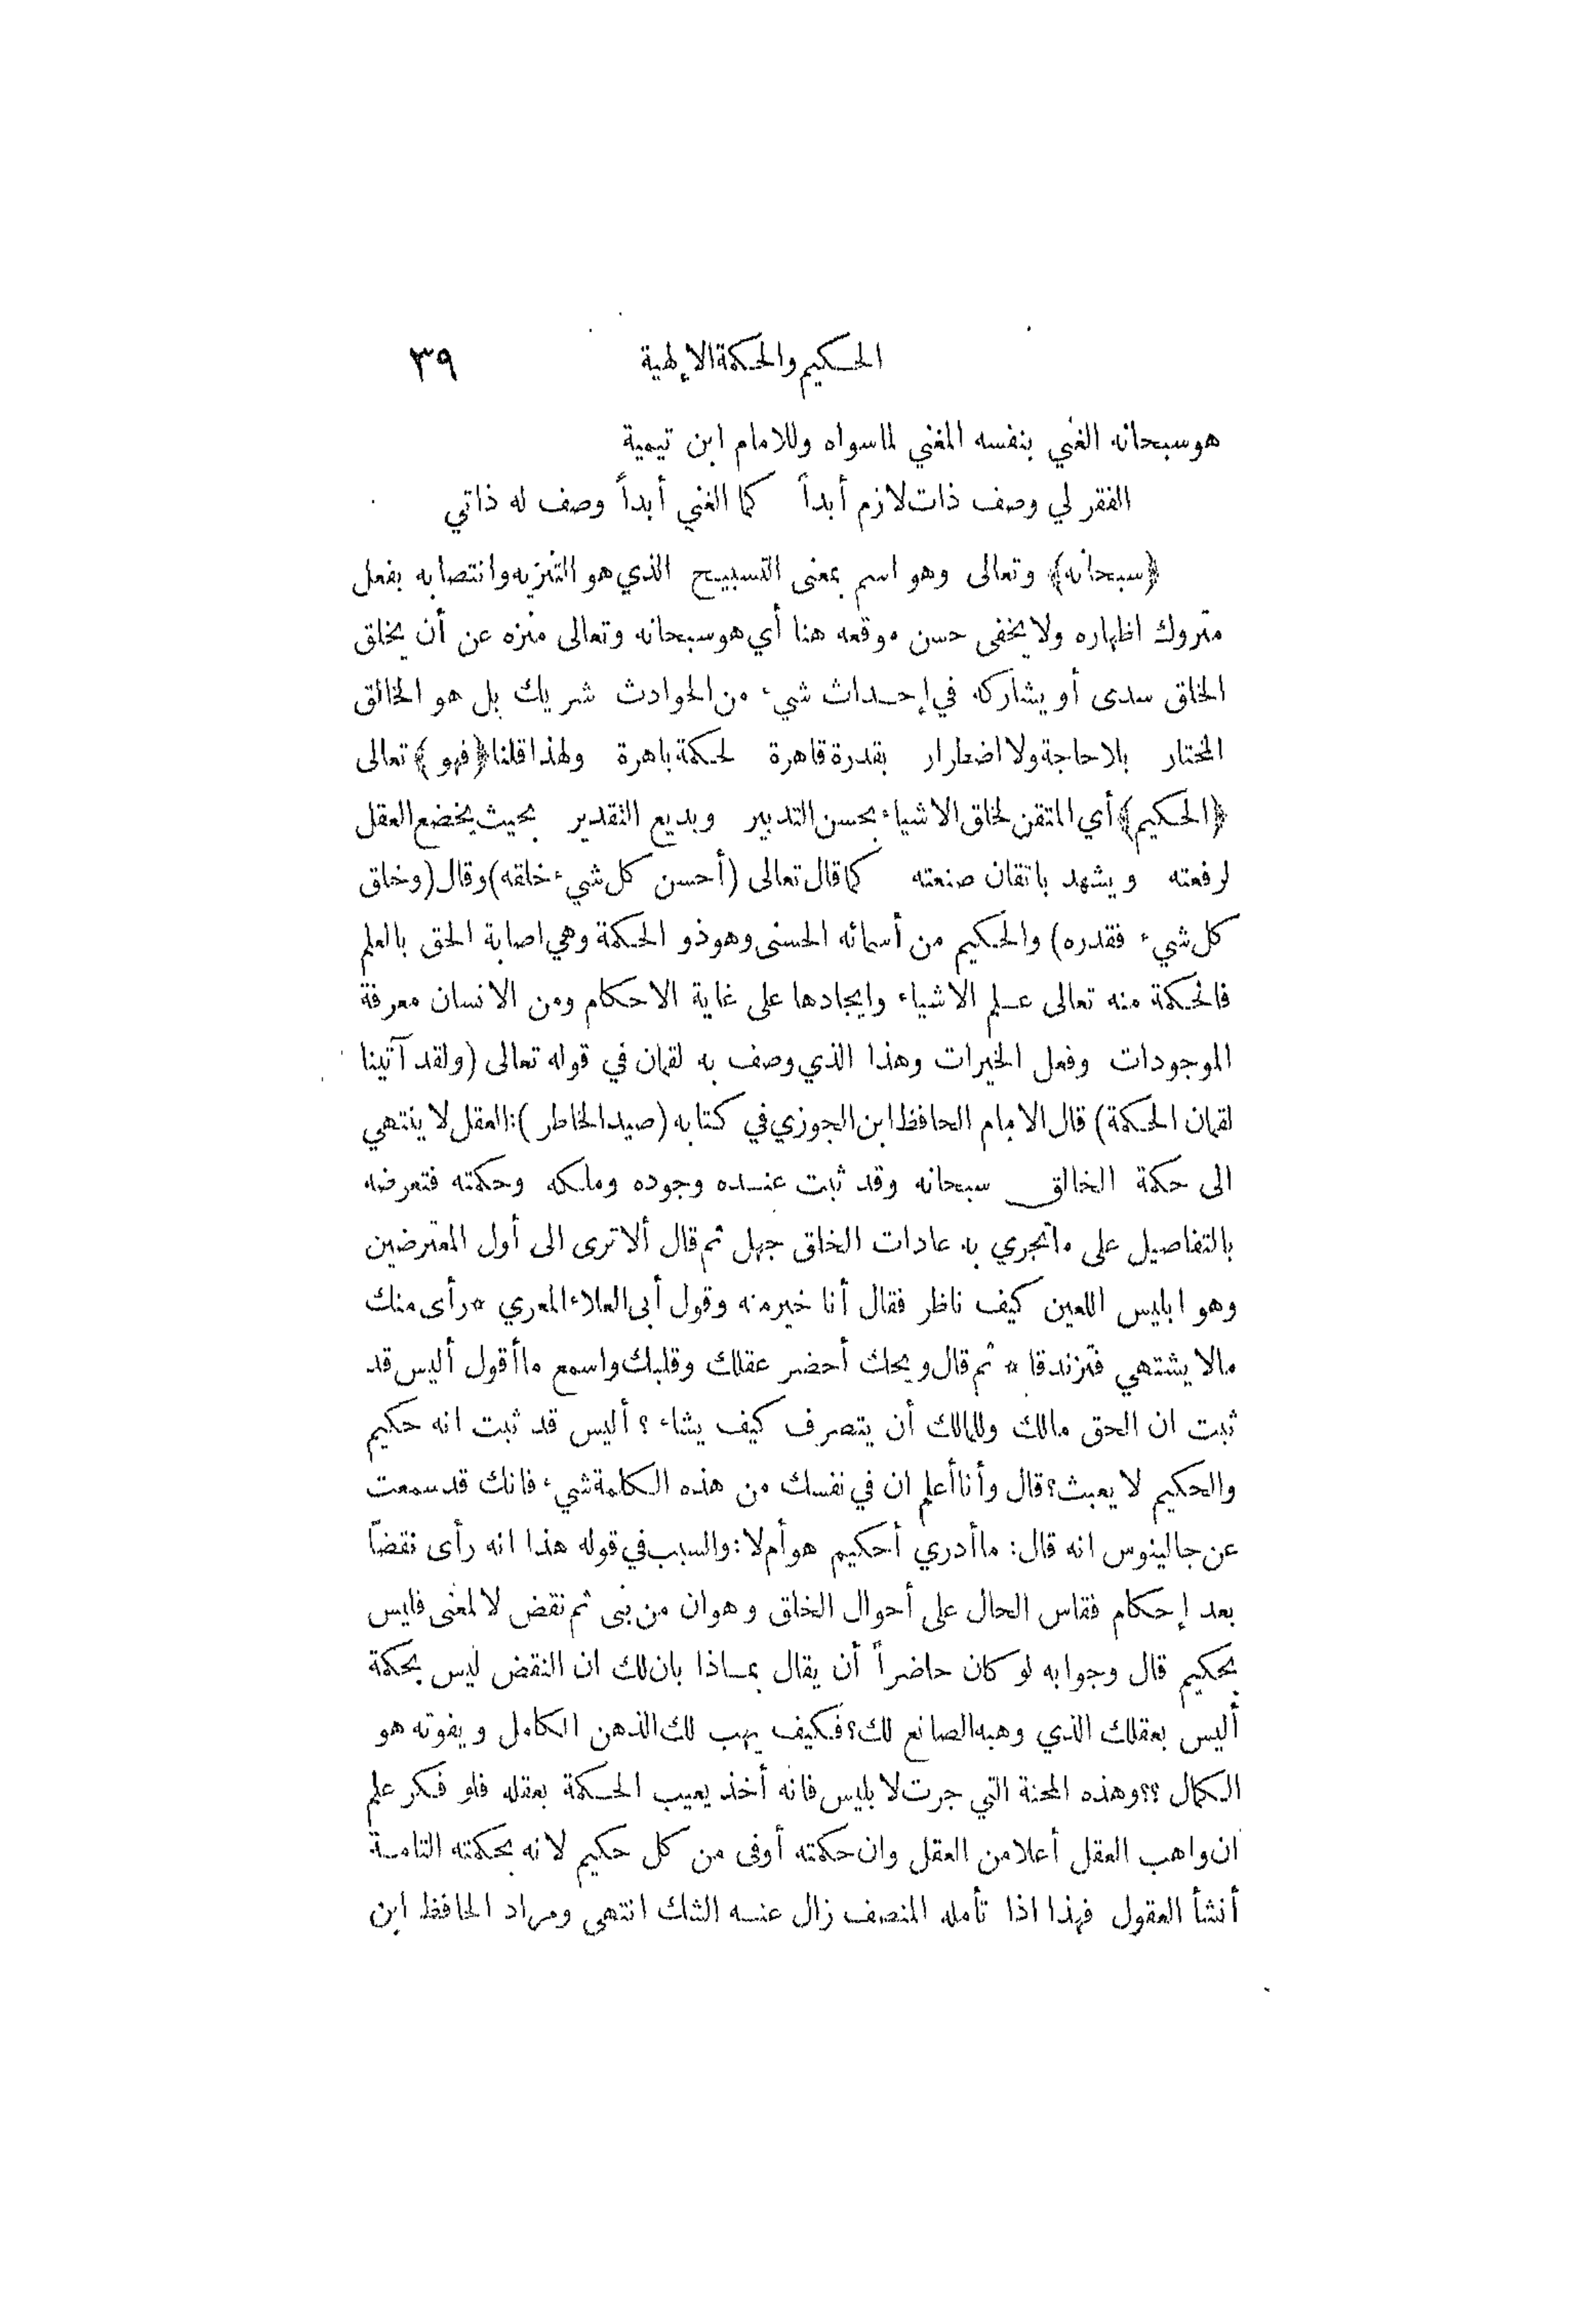 الحكيم والحكمة الإلهية ٣٩
هو سبحانه الغني بنفسه المغني لما سواه وللامام ابن تيمية
الفقر لي وصف ذات لازم أبداً كما الغني أبداً وصف له ذاتي
﴿سبحانه﴾ وتعالى وهو اسم بمعنى التسبيح الذي هو التنزيه وانتصابه بفعل
متروك اظهاره ولا يخفى حسن موقعه هنا أي هو سبحانه وتعالى منزه عن أن يخلق
الخلق سدى أو يشاركه في إحداث شيء من الحوادث شريك بل هو الخالق
المختار بلا حاجة ولا اضطرار بقدرة قاهرة لحكمة باهرة ولهذا قلنا ﴿فهو﴾ تعالى
﴿الحكيم﴾ أي المتقن لخلق الاشياء بحسن التدبير وبديع التقدير بحيث يخضع العقل
لرفعته ويشهد باتقان صنعته كما قال تعالى (أحسن كل شيء خلقه) وقال (وخلق
كل شيء فقدره) والحكيم من أسمائه الحسنى وهو ذو الحكمة وهي اصابة الحق بالعلم
فالحكمة منه تعالى علم الاشياء وايجادها على غاية الاحكام ومن الانسان معرفة
الموجودات وفعل الخيرات وهذا الذي وصف به لقمان في قوله تعالى (ولقد آتينا
لقمان الحكمة) قال الامام الحافظ ابن الجوزي في كتابه (صيد الخاطر): العقل لا ينتهي
الى حكمة الخالق سبحانه وقد ثبت عنده وجوده وملكه وحكمته فتعرضه
بالتفاصيل على ما تجري به عادات الخلق جهل ثم قال ألا ترى الى أول المعترضين
وهو ابليس اللعين كيف ناظر فقال أنا خير منه وقول أبى العلاء المعري * رأى منك
مالا يشتهي فتزندقا * ثم قال ويحك أحضر عقلك وقلبك واسمع ما أقول أليس قد
ثبت ان الحق مالك وللمالك أن يتصرف كيف يشاء ؟ أليس قد ثبت انه حكيم
والحكيم لا يعبث؟ قال وأنا أعلم ان في نفسك من هذه الكلمة شيء فانك قد سمعت
عن جالينوس انه قال: ما أدري أحكيم هو أم لا: والسبب في قوله هذا انه رأى نقضاً
بعد إحكام فقاس الحال على أحوال الخلق وهو ان من بنى ثم نقض لا لمعنى فليس
بحكيم قال وجوابه لو كان حاضراً أن يقال بماذا بان لك ان النقض ليس بحكمة
أليس بعقلك الذي وهبه الصانع لك؟ فكيف يهب لك الذهن الكامل ويفوته هو
الكمال ؟؟ وهذه المحنة التي جرت لابليس فانه أخذ يعيب الحكمة بعقله فلو فكر علم
ان واهب العقل أعلا من العقل وان حكمته أوفى من كل حكيم لانه بحكمته التامة
أنشأ العقول فهذا اذا تأمله المنصف زال عنه الشك انتهى ومراد الحافظ ابن